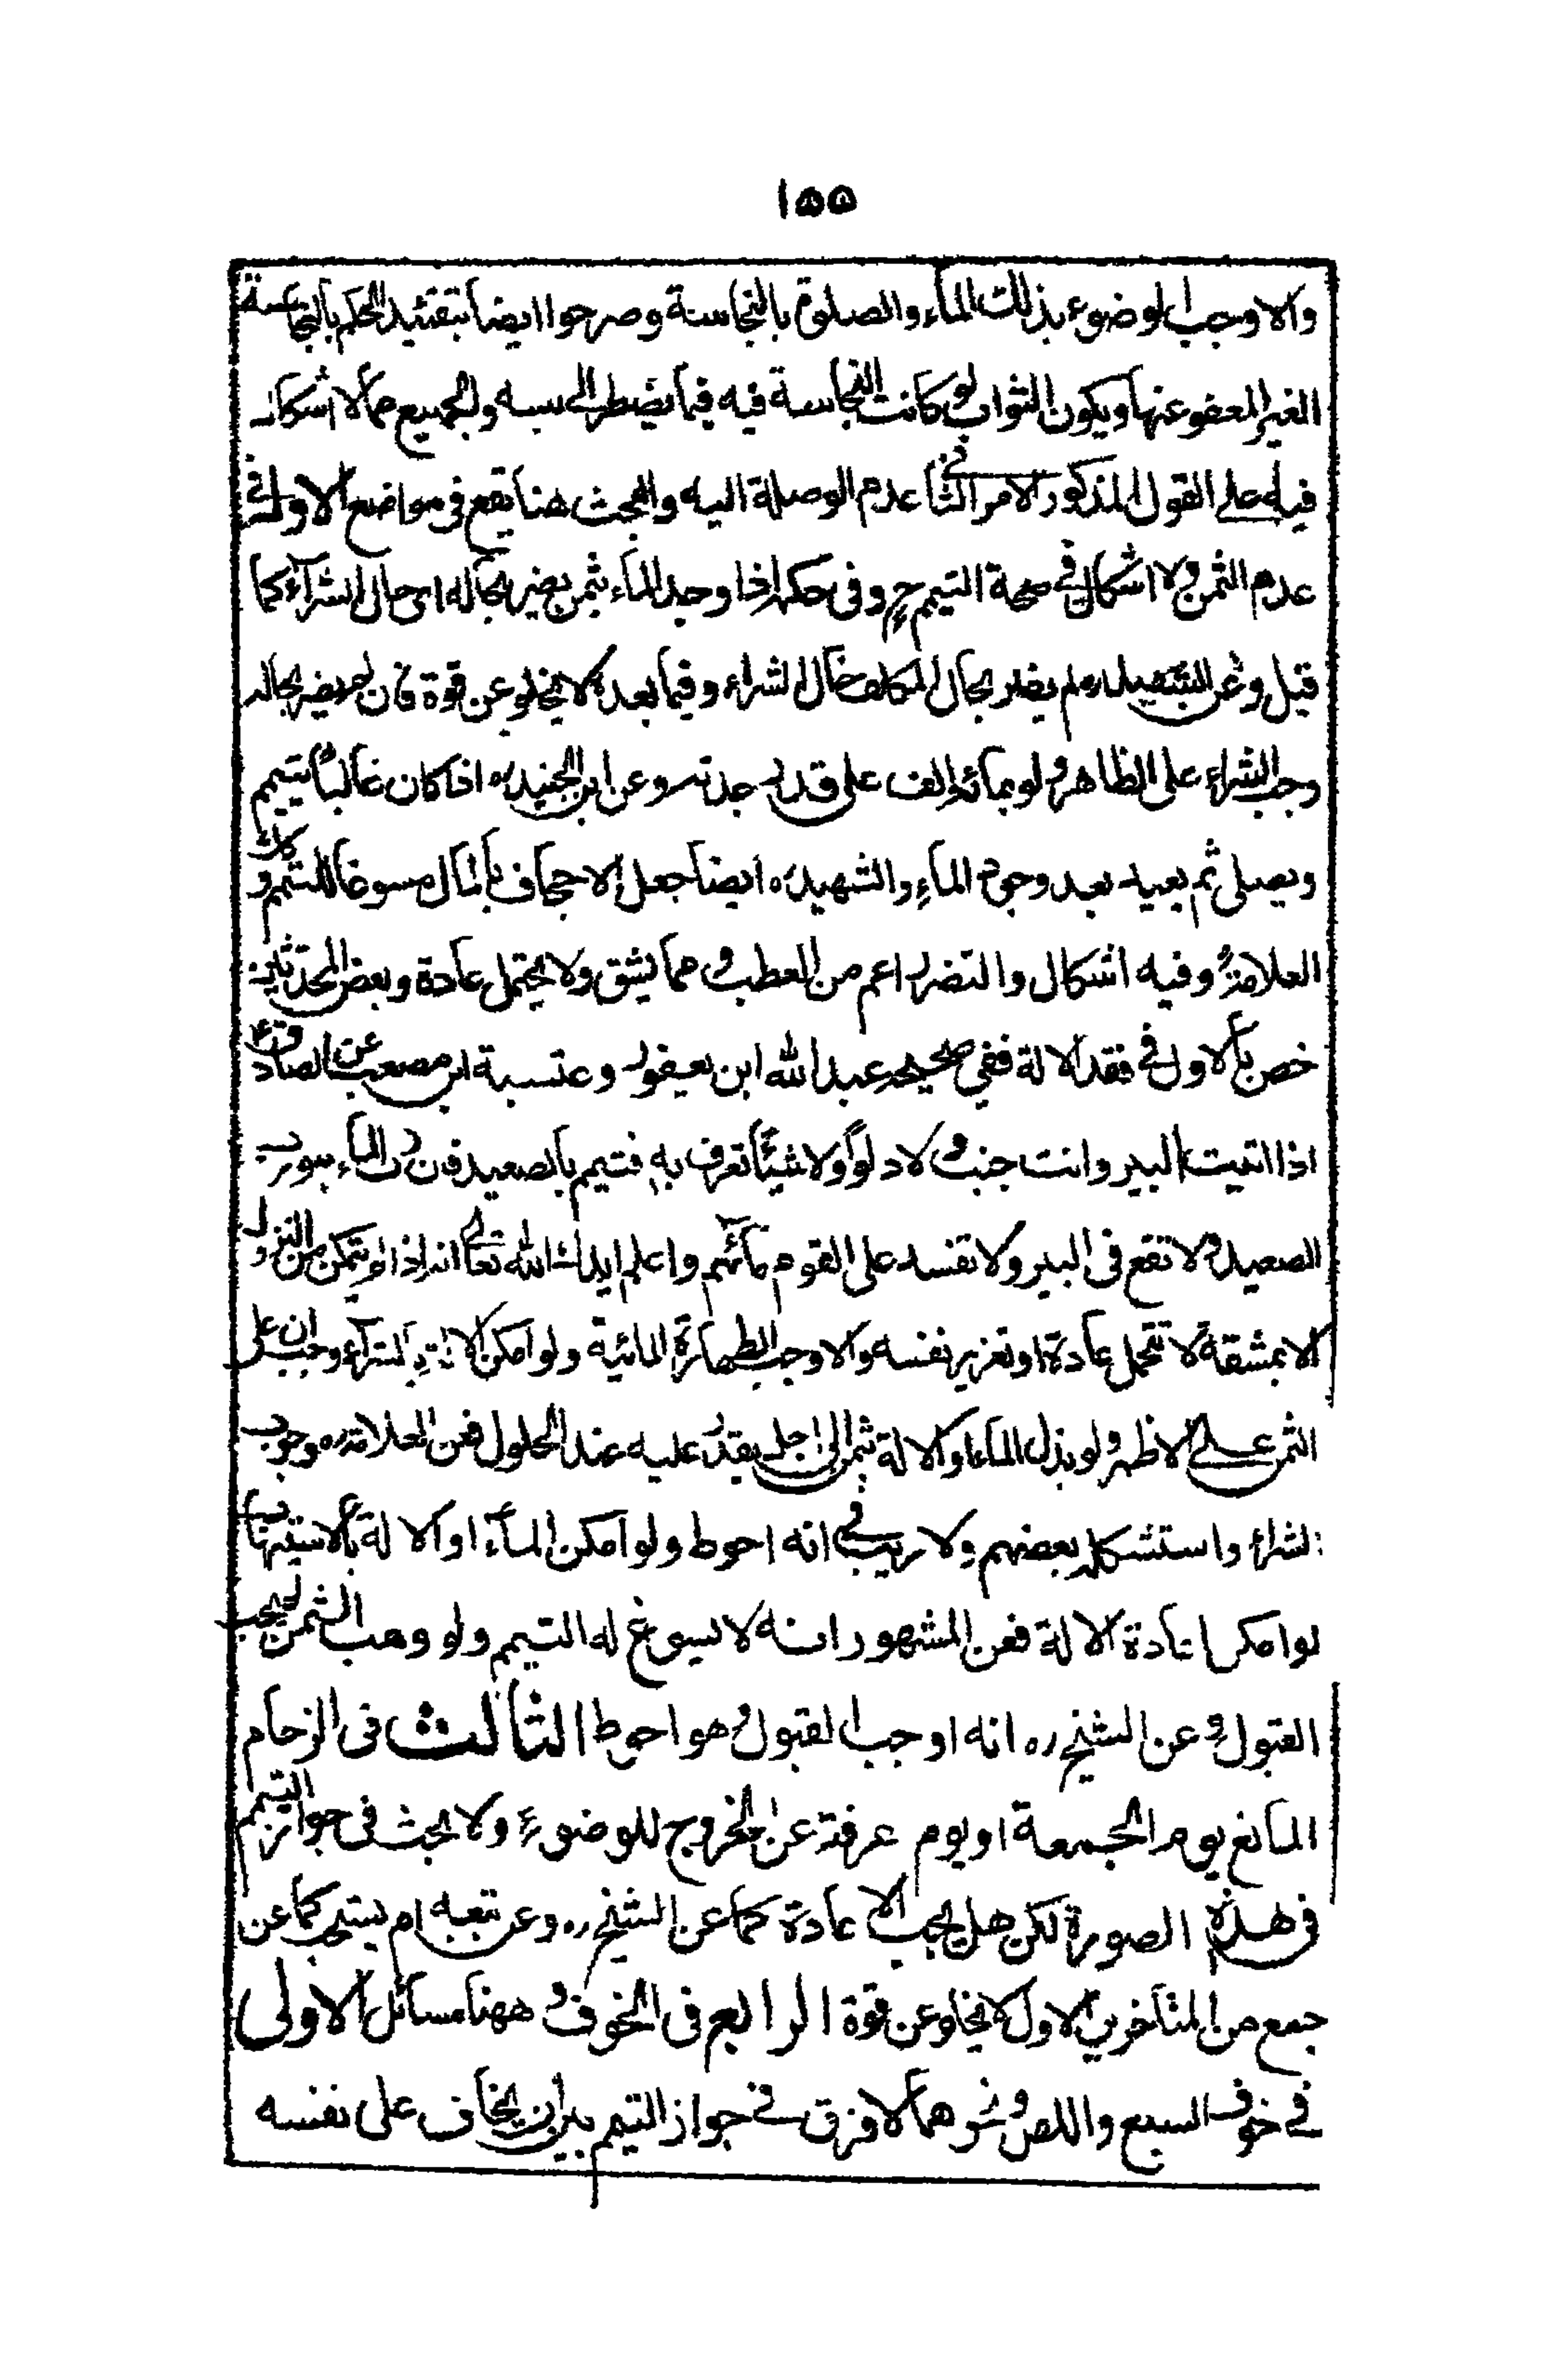 ١٥٥
والا وجب الوضوء بذلك الماء والصلوة بالنجاسة وصرحوا ايضا بتقئيد الحكم بالنجاسة
الغير المعفو عنها ويكون الثواب لو كانت النجاسة فيه فيما يضطر الى لبسه والجميع مما لا اشكال
فيه على القول المذكور الامر الثانى عدم الوصلة اليه والبحث هنا يقع فى مواضع الاول فى
عدم الثمن ولا اشكال فى صحة التيمم ح وفى حكمه اذا وجد الماء بثمن يضر بحاله اى حال الشراء كما
قيل وعن ره لم يضر بحال المكلف حال الشراء وفيما بعده لا يخلو عن قوة فان لم يضر بحاله
وجب الشراء على الظاهر ولو بمائة الف على قدر جدته وعن ابن الجنيد ره اذا كان غالبا يتيمم
ويصلى ثم يعيد بعد وجود الماء والشهيد ره ايضا جعل الاجحاف بالمال مسوغا للتيمم وكذلك
العلامة ره وفيه اشكال والتضرر اعم من العطب ومما يشق ولا يحتمل عادة وبعض المحدثين
خص بالاول فى فقد الالة ففي صحيحه عبد الله ابن يعفور وعتسبة ابن مصعب عن الصادق ع
اذا اتيت البير وانت جنب ولا دلوا ولا شيئا تغرف به فتيمم بالصعيد فان رب الماء هو رب
الصعيد ولا تقع فى البير ولا تفسد على القوم مائهم واعلم ايدك الله تعالى انه اذا لم يتمكن من النزول
الا بمشقة لا تتحمل عادة او تغرير نفسه والا وجب الطهارة المائية ولو امكن الالة بالشراء وجب ان على
الثمن على الاظهر ولو بذل الماء او الالة بثمن الى اجل يقدر عليه عند الحلول فعن العلامة ره وجوب
الشراء واستشكله بعضهم ولا ريب فى انه احوط ولو امكن الماء او الالة بالاستيهاب
لو امكن اعادة الالة فعن المشهور انه لا يسوغ له التيمم ولو وهب الثمن لم يجب
القبول وعن الشيخ ره انه اوجب القبول وهو احوط الثالث فى الزحام
المانع يوم الجمعة او يوم عرفة عن الخروج للوضوء ولا بحث فى جواز التيمم
فى هذه الصورة لكن هل يجب الاعادة كما عن الشيخ ره وعن تبعه ام يستحب كما عن
جمع من المتأخرين الاول لا يخلو عن قوة الرابع فى الخوف وههنا مسائل الاولى
فى خوف السبع واللص ونحوهما لا فرق فى جواز التيمم بين ان يخاف على نفسه